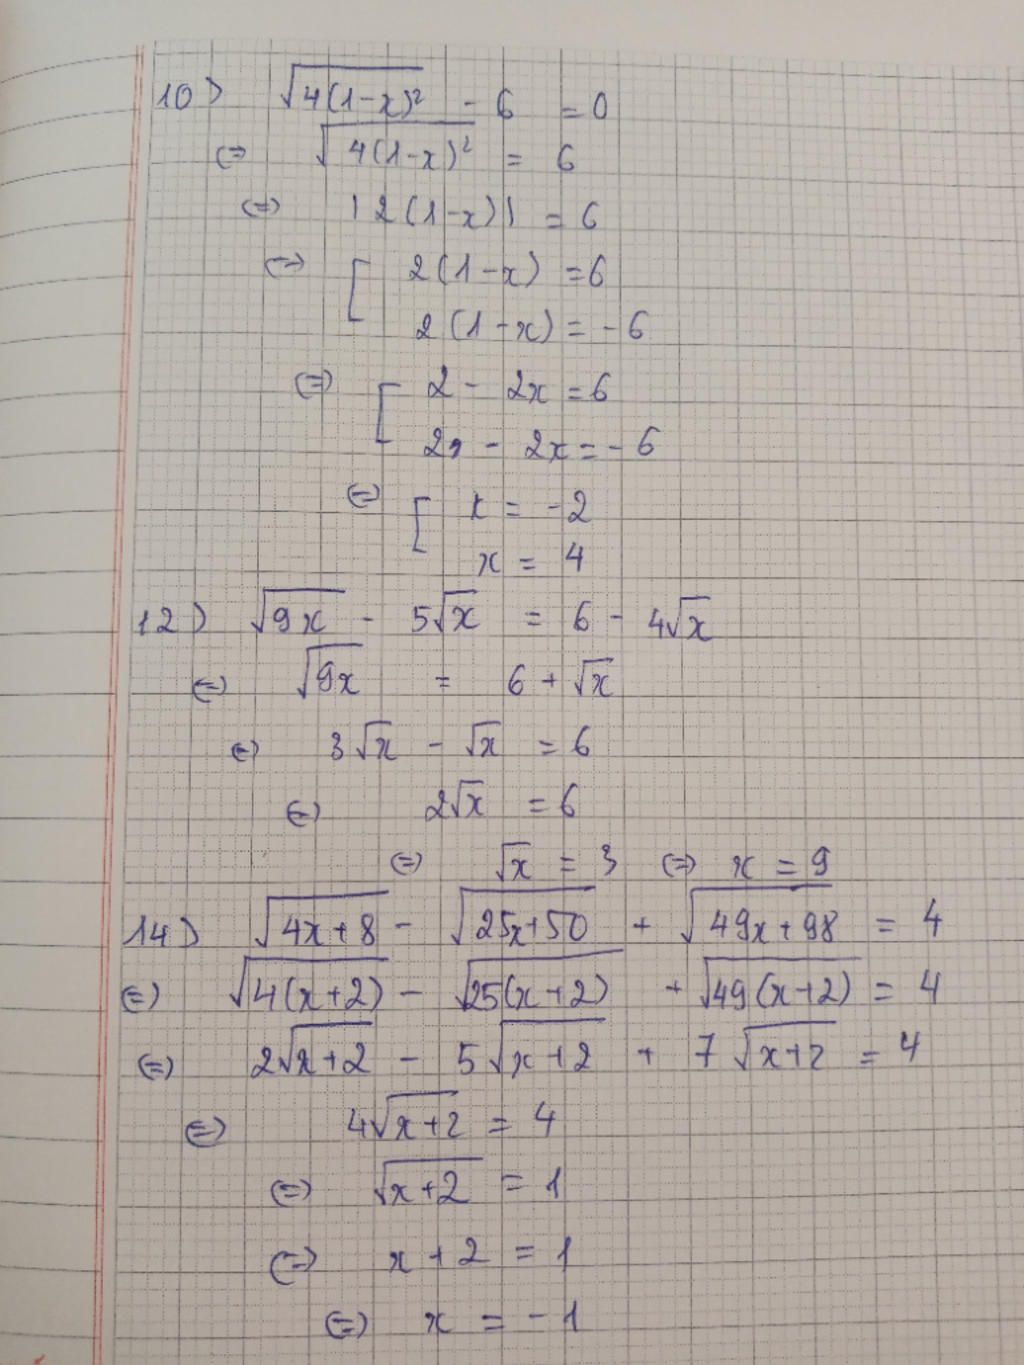 10) √4(1-x)² - 6 = 0
(=) √4(1-x)² = 6
(=) |2(1-x)| = 6
(=) [ 2(1-x) = 6
2(1-x) = -6
(=) [ 2 - 2x = 6
2 - 2x = -6
(=) [ x = -2
x = 4
12) √9x - 5√x = 6 - 4√x
(=) √9x = 6 + √x
(=) 3√x - √x = 6
(=) 2√x = 6
(=) √x = 3 (=) x = 9
14) √4x+8 - √25x+50 + √49x+98 = 4
(=) √4(x+2) - √25(x+2) + √49(x+2) = 4
(=) 2√x+2 - 5√x+2 + 7√x+2 = 4
(=) 4√x+2 = 4
(=) √x+2 = 1
(=) x+2 = 1
(=) x = -1